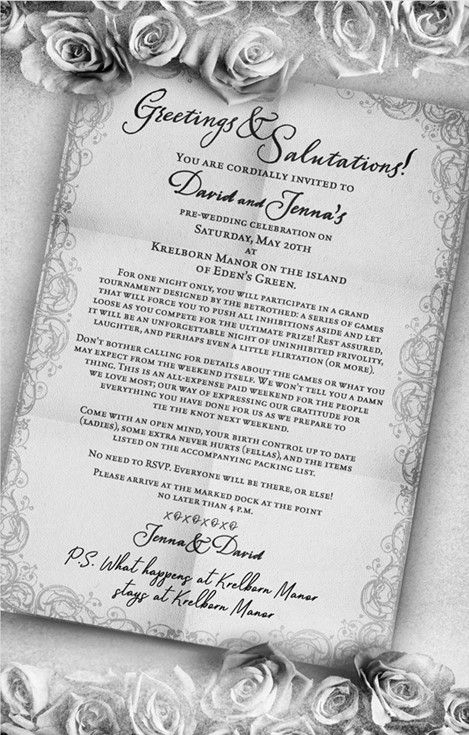 Greetings &
Salutations!
You are cordially invited to
David and Jenna's
pre-wedding celebration on
Saturday, May 20th
at
Krelborn Manor on the island
of Eden's Green.
For one night only, you will participate in a grand
tournament designed by the betrothed: a series of games
that will force you to push all inhibitions aside and let
loose as you compete for the ultimate prize! Rest assured,
it will be an unforgettable night of uninhibited frivolity,
laughter, and perhaps even a little flirtation (or more).
Don't bother calling for details about the games or what you
may expect from the weekend itself. We won't tell you a damn
thing. This is an all-expense paid weekend for the people
we love most; our way of expressing our gratitude for
everything you have done for us as we prepare to
tie the knot next weekend.
Come with an open mind, your birth control up to date
(ladies), some extra never hurts (fellas), and the items
listed on the accompanying packing list.
No need to RSVP. Everyone will be there, or else!
Please arrive at the marked dock at the point
no later than 4 p.m.
xoxoxoxo
Jenna & David
P.S. What happens at Krelborn Manor
stays at Krelborn Manor